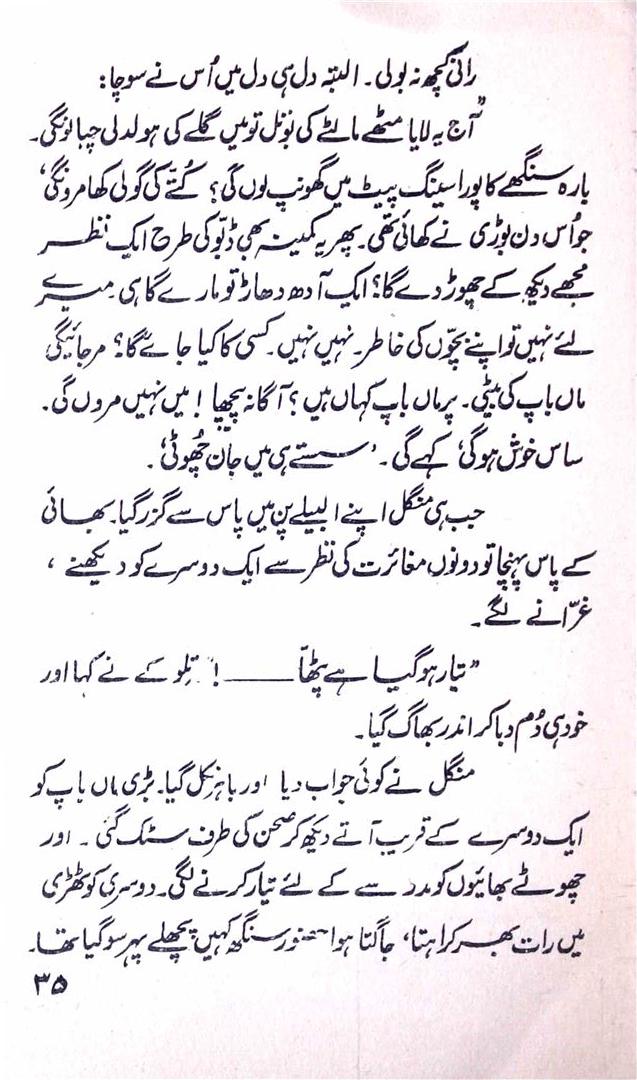 رانی کچھ نہ بولی۔ البتہ دل ہی دل میں اُس نے سوچا :
”آج یہ لایا مٹھے مالٹے کی بوتل تو میں گلے کی ہولدلی چبا لونگی۔
بارہ سنگھے کا پورا سینگ پیٹ میں گھونپ لوں گی؟ کُتّے کی گولی کھا مرونگی‘
جو اُس دن بوڑی نے کھائی تھی۔ پھر یہ کمینہ بھی ڈبّو کی طرح ایک نظر
مجھے دیکھ کے چھوڑ دے گا؟ ایک آدھ دھاڑ تو مارے گا ہی۔ میرے
لئے نہیں تو اپنے بچّوں کی خاطر۔ نہیں نہیں۔ کسی کا کیا جائے گا؟ مر جائیگی
ماں باپ کی بیٹی۔ پر ماں باپ کہاں ہیں؟ آگا نہ پیچھا! میں نہیں مروں گی۔
ساس خوش ہو گی‘ کہے گی۔ ’سستے ہی میں جان چُھوٹی‘۔
جب ہی منگل اپنے البیلے پن میں پاس سے گزر گیا۔ بھائی
کے پاس پہنچا تو دونوں مغائرت کی نظر سے ایک دوسرے کو دیکھنے ،
غرّانے لگے۔
”تیار ہو گیا ہے پٹھا ——— !“ تلوکے نے کہا اور
خود ہی دُم دبا کر اندر بھاگ گیا۔
منگل نے کوئی جواب دیا اور باہر نکل گیا۔ بڑی ماں باپ کو
ایک دوسرے کے قریب آتے دیکھ کر صحن کی طرف سٹک گئی ۔ اور
چھوٹے بھائیوں کو مدرسے کے لئے تیار کرنے لگی۔ دوسری کوٹھڑی
میں رات بھر کراہتا، جاگتا ہوا حضور سنگھ کہیں پچھلے پہر سو گیا تھا۔
۳۵